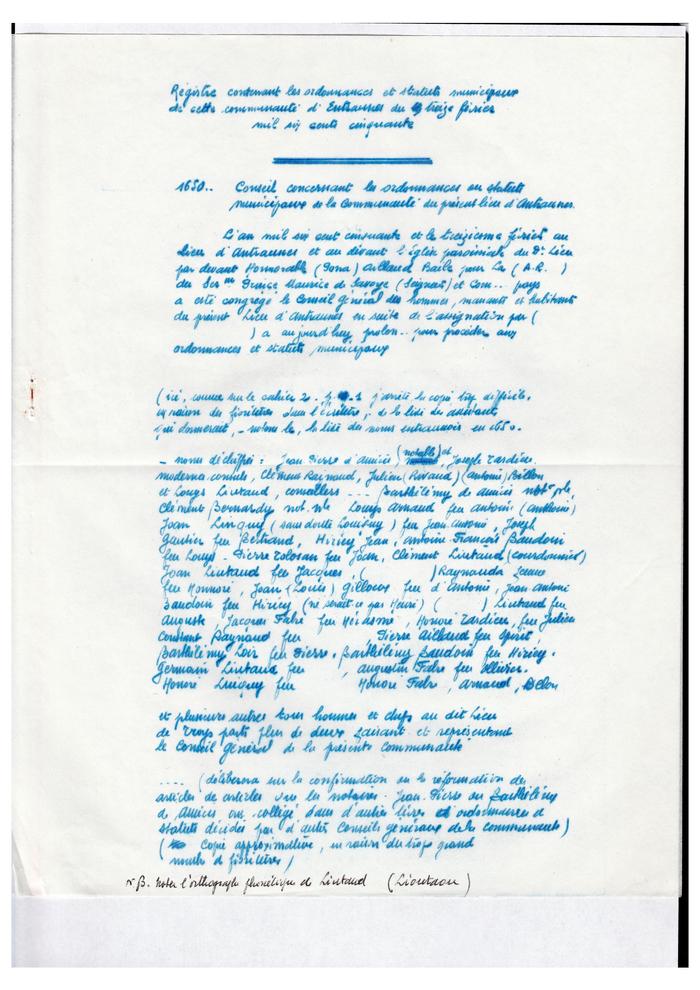 Régistre contenant les ordonnances et statuts municipaux
de cette communauté d'Entraunes du treize février
mil six cents cinquante
1650.. Conseil concernant les ordonnances ou statuts
municipaux de la Communauté du présent lieu d'Antraunes.
L'an mil six cent cinquante et le treiziesme février au
lieu d'Antraunes et au dévant l'église paroissiale du Dt Lieu
par devant Honnorable (Jona) Aillaud Baile pour La (A.R. )
du Sermo Prince Maurice de Savoye (Seignat) et Com.. pays
a esté congrégé le Conseil Général des hommes, manants et habitants
du présent Lieu d'Antraunes en suite de l'assignation par (
) a aujourd'huy prolon.. pour procéder aux
ordonnances et statuts municipaux
(ici, comme sur le cahier 2. p. 1 j'arrête la copie trop difficile,
en raison des fioritures dans l'écriture, de la liste des assistants
qui donnerait, - notons le, la liste des noms entraunois en 1650.
- noms déchiffrés : Jean Pierre d'Amiées (notable) et Joseph Tardieu
moderna consuls, Clément Raimaud, Julien (Ravaud) (Antoine) Billon
et Louys Lieutaud, consellers .... Barthélémy de Amiées notre ple,
Clément Bernardy not. nle Louys Arnaud feu Antoni (Anthoine)
Joan Linguy (sans doute Louiquy) feu Jean Antoine, Joseph
Gautier feu Bertrand, Hiriey Jean, Antoine François Baudoin
feu Louys - Pierre Tolosan feu Joan, Clément Lieutaud (courdonnier)
Joan Lieutaud feu Jacques, ( ) Raynauda
feu Honnoré, Joan (Louis) Gilloux feu d'Antoine, Jean Antoni
Baudoin feu Hiriey (ne serait-ce pas Henri) ( ) Lieutaud feu
Auguste, Jacques Fabre feu Hérasme, Honoré Tardieu, feu Julien
Constant Raynaud feu Pierre Aillaud feu Spirit,
Barthélémy Loir feu Pierre. Barthélémy Baudoin feu Hiriey.
Germain Lieutaud feu , Augustin Fabre feu Ollivier.
Honoré Linguy feu Honoré Fabre, Arnaud,
et plusieurs autres tous hommes et chefs au dit Lieu
de troys parts plus de deux faisant et représentant
le Conseil Général de la présente communauté
.... (délibérera sur la confirmation ou la réformation des
articles de articles que les notaires Jean Pierre ou Barthélémy
de Amiées ont colligé dans d'autres livres et ordonnances et
statuts décidés par d'autres Conseils généraux de la communauté)
( Copie approximative, en raison du trop grand
nombre de fioritures)
N.B. Noter l'orthographe phonétique de Lieutaud (Lioutaou)